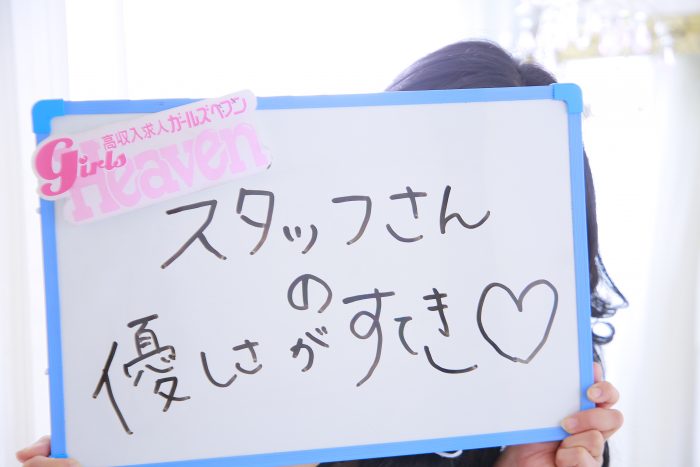 高収入求人ガールズヘブン
Girls
Heaven
スタッフさん
の
優しさがすてき♡